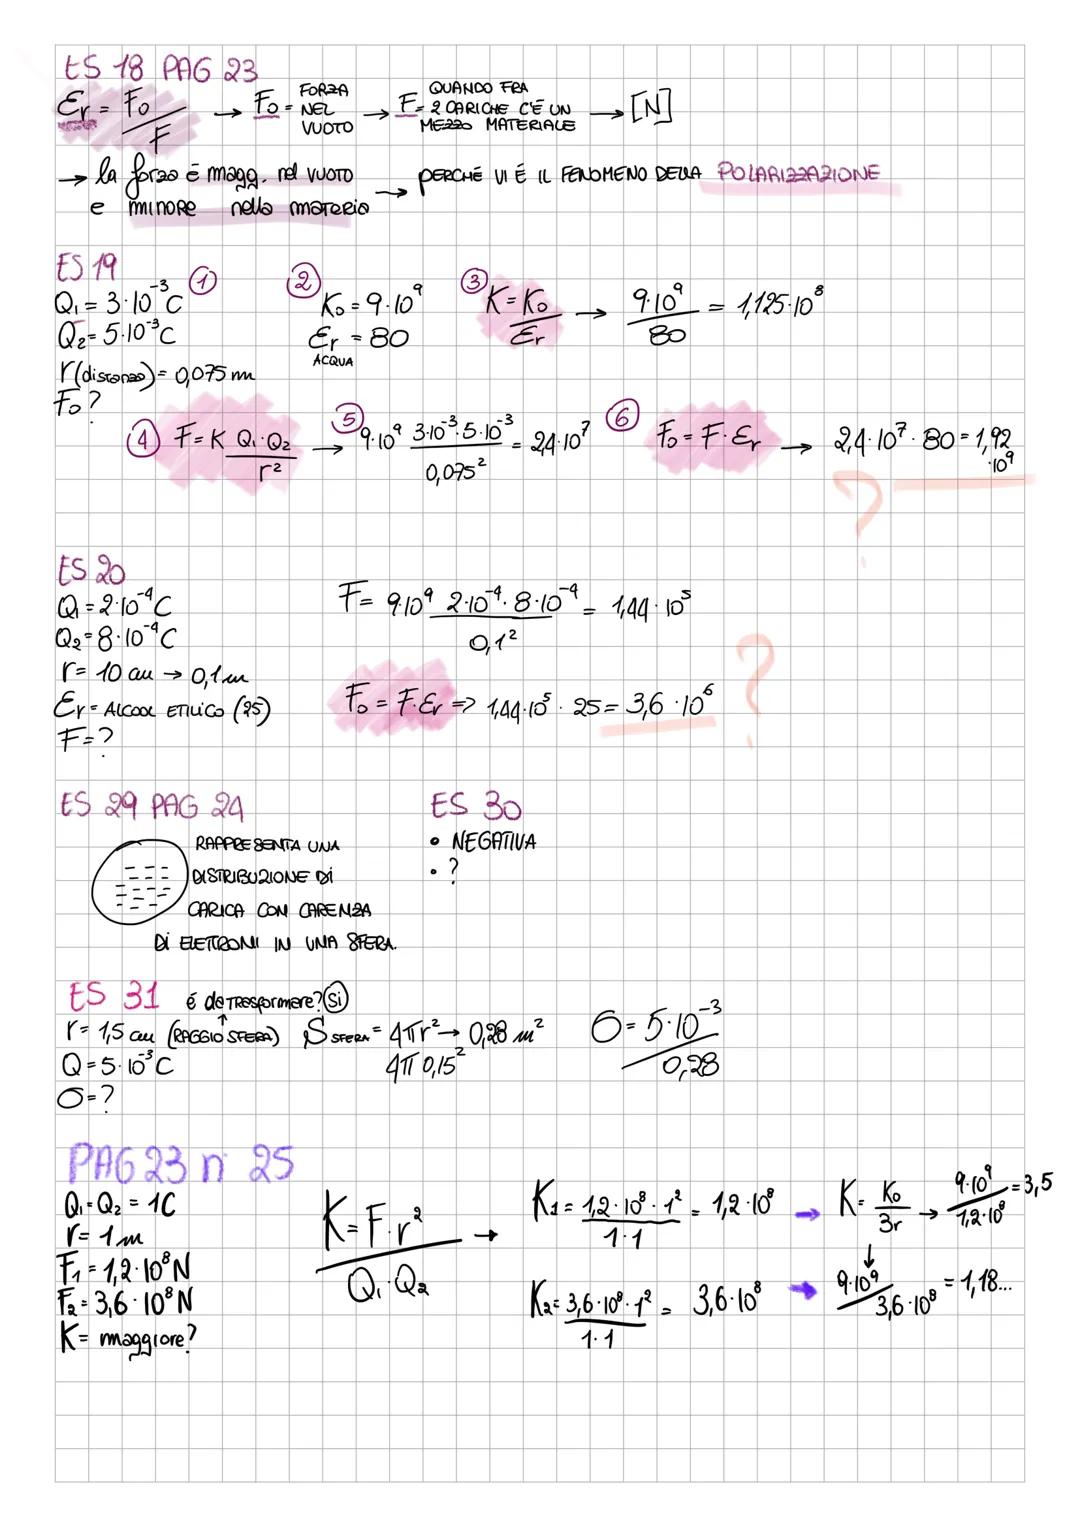 ES 18 PAG 23
Er = F₀/F → F₀ = FORZA NEL VUOTO → F = QUANDO FRA 2 CARICHE C'È UN MEZZO MATERIALE → [N]
→ la forza è magg. nel VUOTO e MINORE nella materia → PERCHÉ VI É IL FENOMENO DELLA POLARIZZAZIONE
ES 19
① Q₁ = 3·10⁻³ C
Q₂ = 5·10⁻³ C
r (distanza) = 0,075 m
F₀ ?
② K₀ = 9·10⁹
Er = 80
ACQUA
③ K = K₀/Er → 9·10⁹/80 = 1,125·10⁸
④ F = K Q₁·Q₂/r² → ⑤ 9·10⁹ 3·10⁻³·5·10⁻³/0,075² = 2,4·10⁷
⑥ F₀ = F·Er → 2,4·10⁷·80 = 1,92·10⁹
?
ES 20
Q₁ = 2·10⁻⁴ C
Q₂ = 8·10⁻⁴ C
r = 10 cm → 0,1 m
Er = ALCOOL ETILICO (25)
F = ?
F = 9·10⁹ 2·10⁻⁴·8·10⁻⁴/0,1² = 1,44·10⁵
F₀ = F·Er => 1,44·10⁵·25 = 3,6·10⁶
?
ES 29 PAG 24
RAPPRESENTA UNA
DISTRIBUZIONE DI
CARICA CON CARENZA
DI ELETTRONI IN UNA SFERA.
ES 30
• NEGATIVA
• ?
ES 31 é da TRASformare? Si
r = 1,5 cm (RAGGIO SFERA)
Q = 5·10⁻³ C
σ = ?
S SFERA = 4πr² → 0,28 m²
4π 0,15²
σ = 5·10⁻³/0,28
PAG 23 n 25
Q₁ = Q₂ = 1C
r = 1 m
F₁ = 1,2·10⁸ N
F₂ = 3,6·10⁸ N
K = maggiore?
K = F·r²/Q₁·Q₂ →
K₁ = 1,2·10⁸·1²/1·1 = 1,2·10⁸ → K = K₀/3r → 9·10⁹/1,2·10⁸ = 3,5
K₂ = 3,6·10⁸·1²/1·1 = 3,6·10⁸ → 9·10⁹/3,6·10⁸ = 1,18...